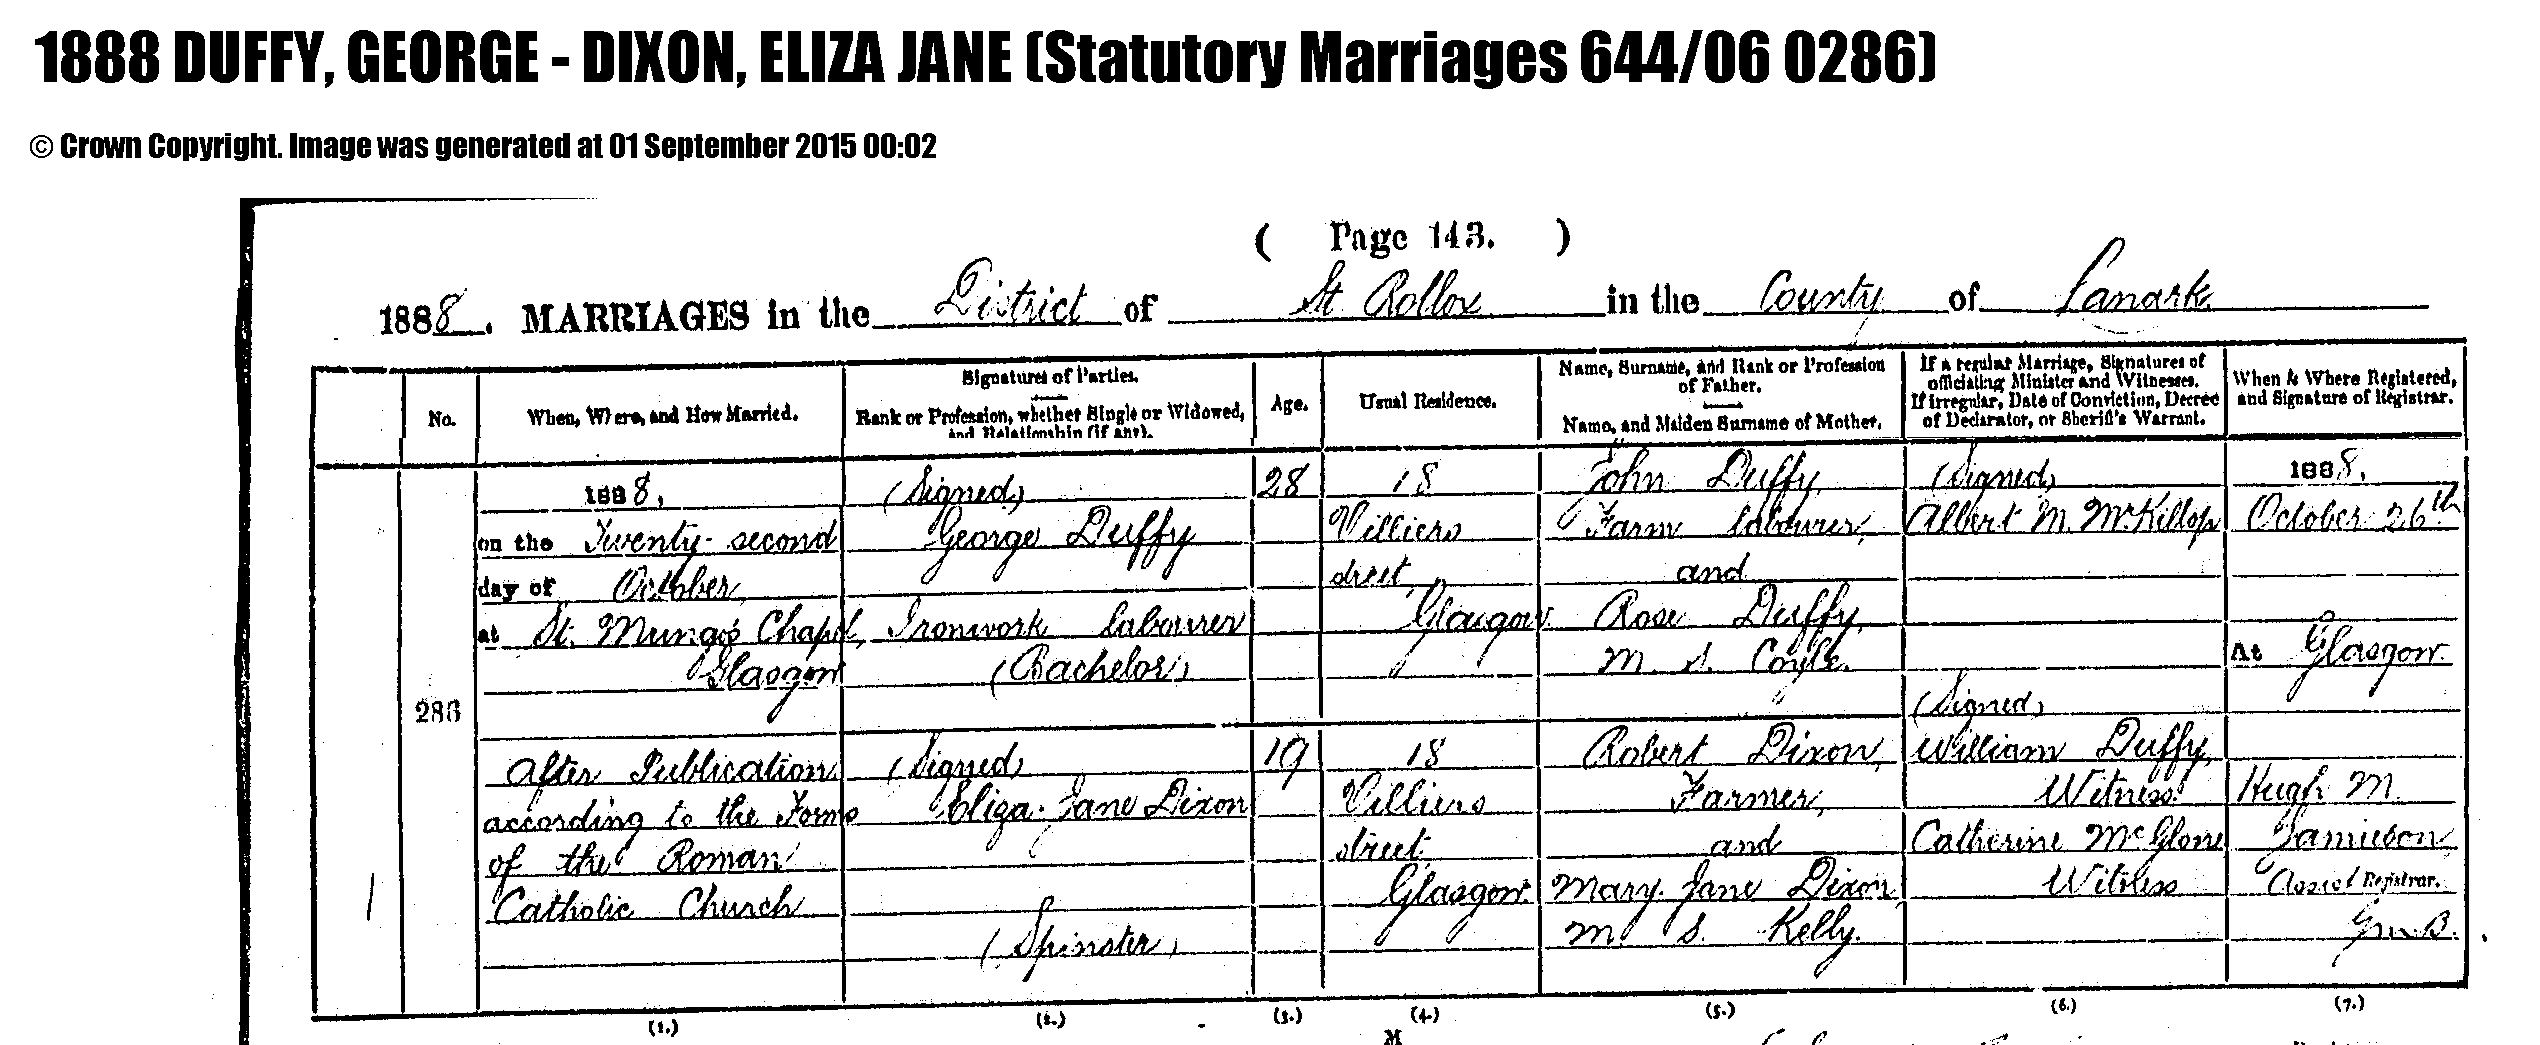 1888 DUFFY, GEORGE - DIXON, ELIZA JANE (Statutory Marriages 644/06 0286)
© Crown Copyright. Image was generated at 01 September 2015 00:02
( Page 143. )
1888. MARRIAGES in the District of St Rollox in the County of Lanark
No.
When, Where, and How Married.
Signatures of Parties.
Rank or Profession, whether Single or Widowed, and Relationship (if any).
Age.
Usual Residence.
Name, Surname, and Rank or Profession of Father.
Name, and Maiden Surname of Mother.
If a regular Marriage, Signatures of officiating Minister and Witnesses.
If irregular, Date of Conviction, Decree of Declarator, or Sheriff's Warrant.
When & Where Registered, and Signature of Registrar.
286
1888,
on the Twenty-second
day of October,
at St. Mungo's Chapel,
Glasgow
After Publication
according to the Forms
of the Roman
Catholic Church
(Signed)
George Duffy
Ironwork labourer
(Bachelor)
(Signed)
Eliza Jane Dixon
(Spinster)
28
19
18
Villiers
street,
Glasgow.
18
Villiers
street,
Glasgow.
John Duffy,
Farm labourer,
and
Rose Duffy,
M. S. Coyle.
Robert Dixon,
Farmer,
and
Mary Jane Dixon,
M S. Kelly.
(Signed)
Albert M. McKillop
(Signed)
William Duffy,
Witness.
Catherine McGlone
Witness
1888.
October 26th
At Glasgow.
Hugh M.
Jamieson,
Assist Registrar.
(1.)
(2.)
(3.)
(4.)
(5.)
(6.)
(7.)
M